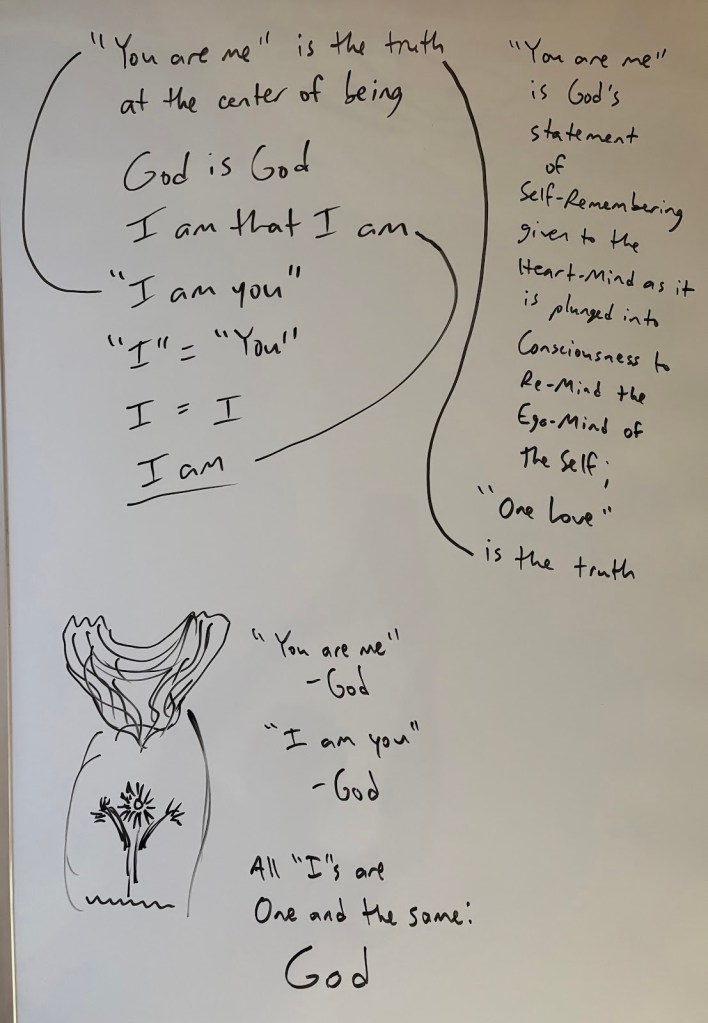 "You are me" is the truth
at the center of being
God is God
I am that I am
"I am you"
"I" = "You"
I = I
I am
"You are me"
is God's
statement
of
Self-Remembering
given to the
Heart-Mind as it
is plunged into
Consciousness to
Re-Mind the
Ego-Mind of
the Self;
"One Love"
is the truth
"You are me"
-God
"I am you"
-God
All "I"s are
One and the same:
God